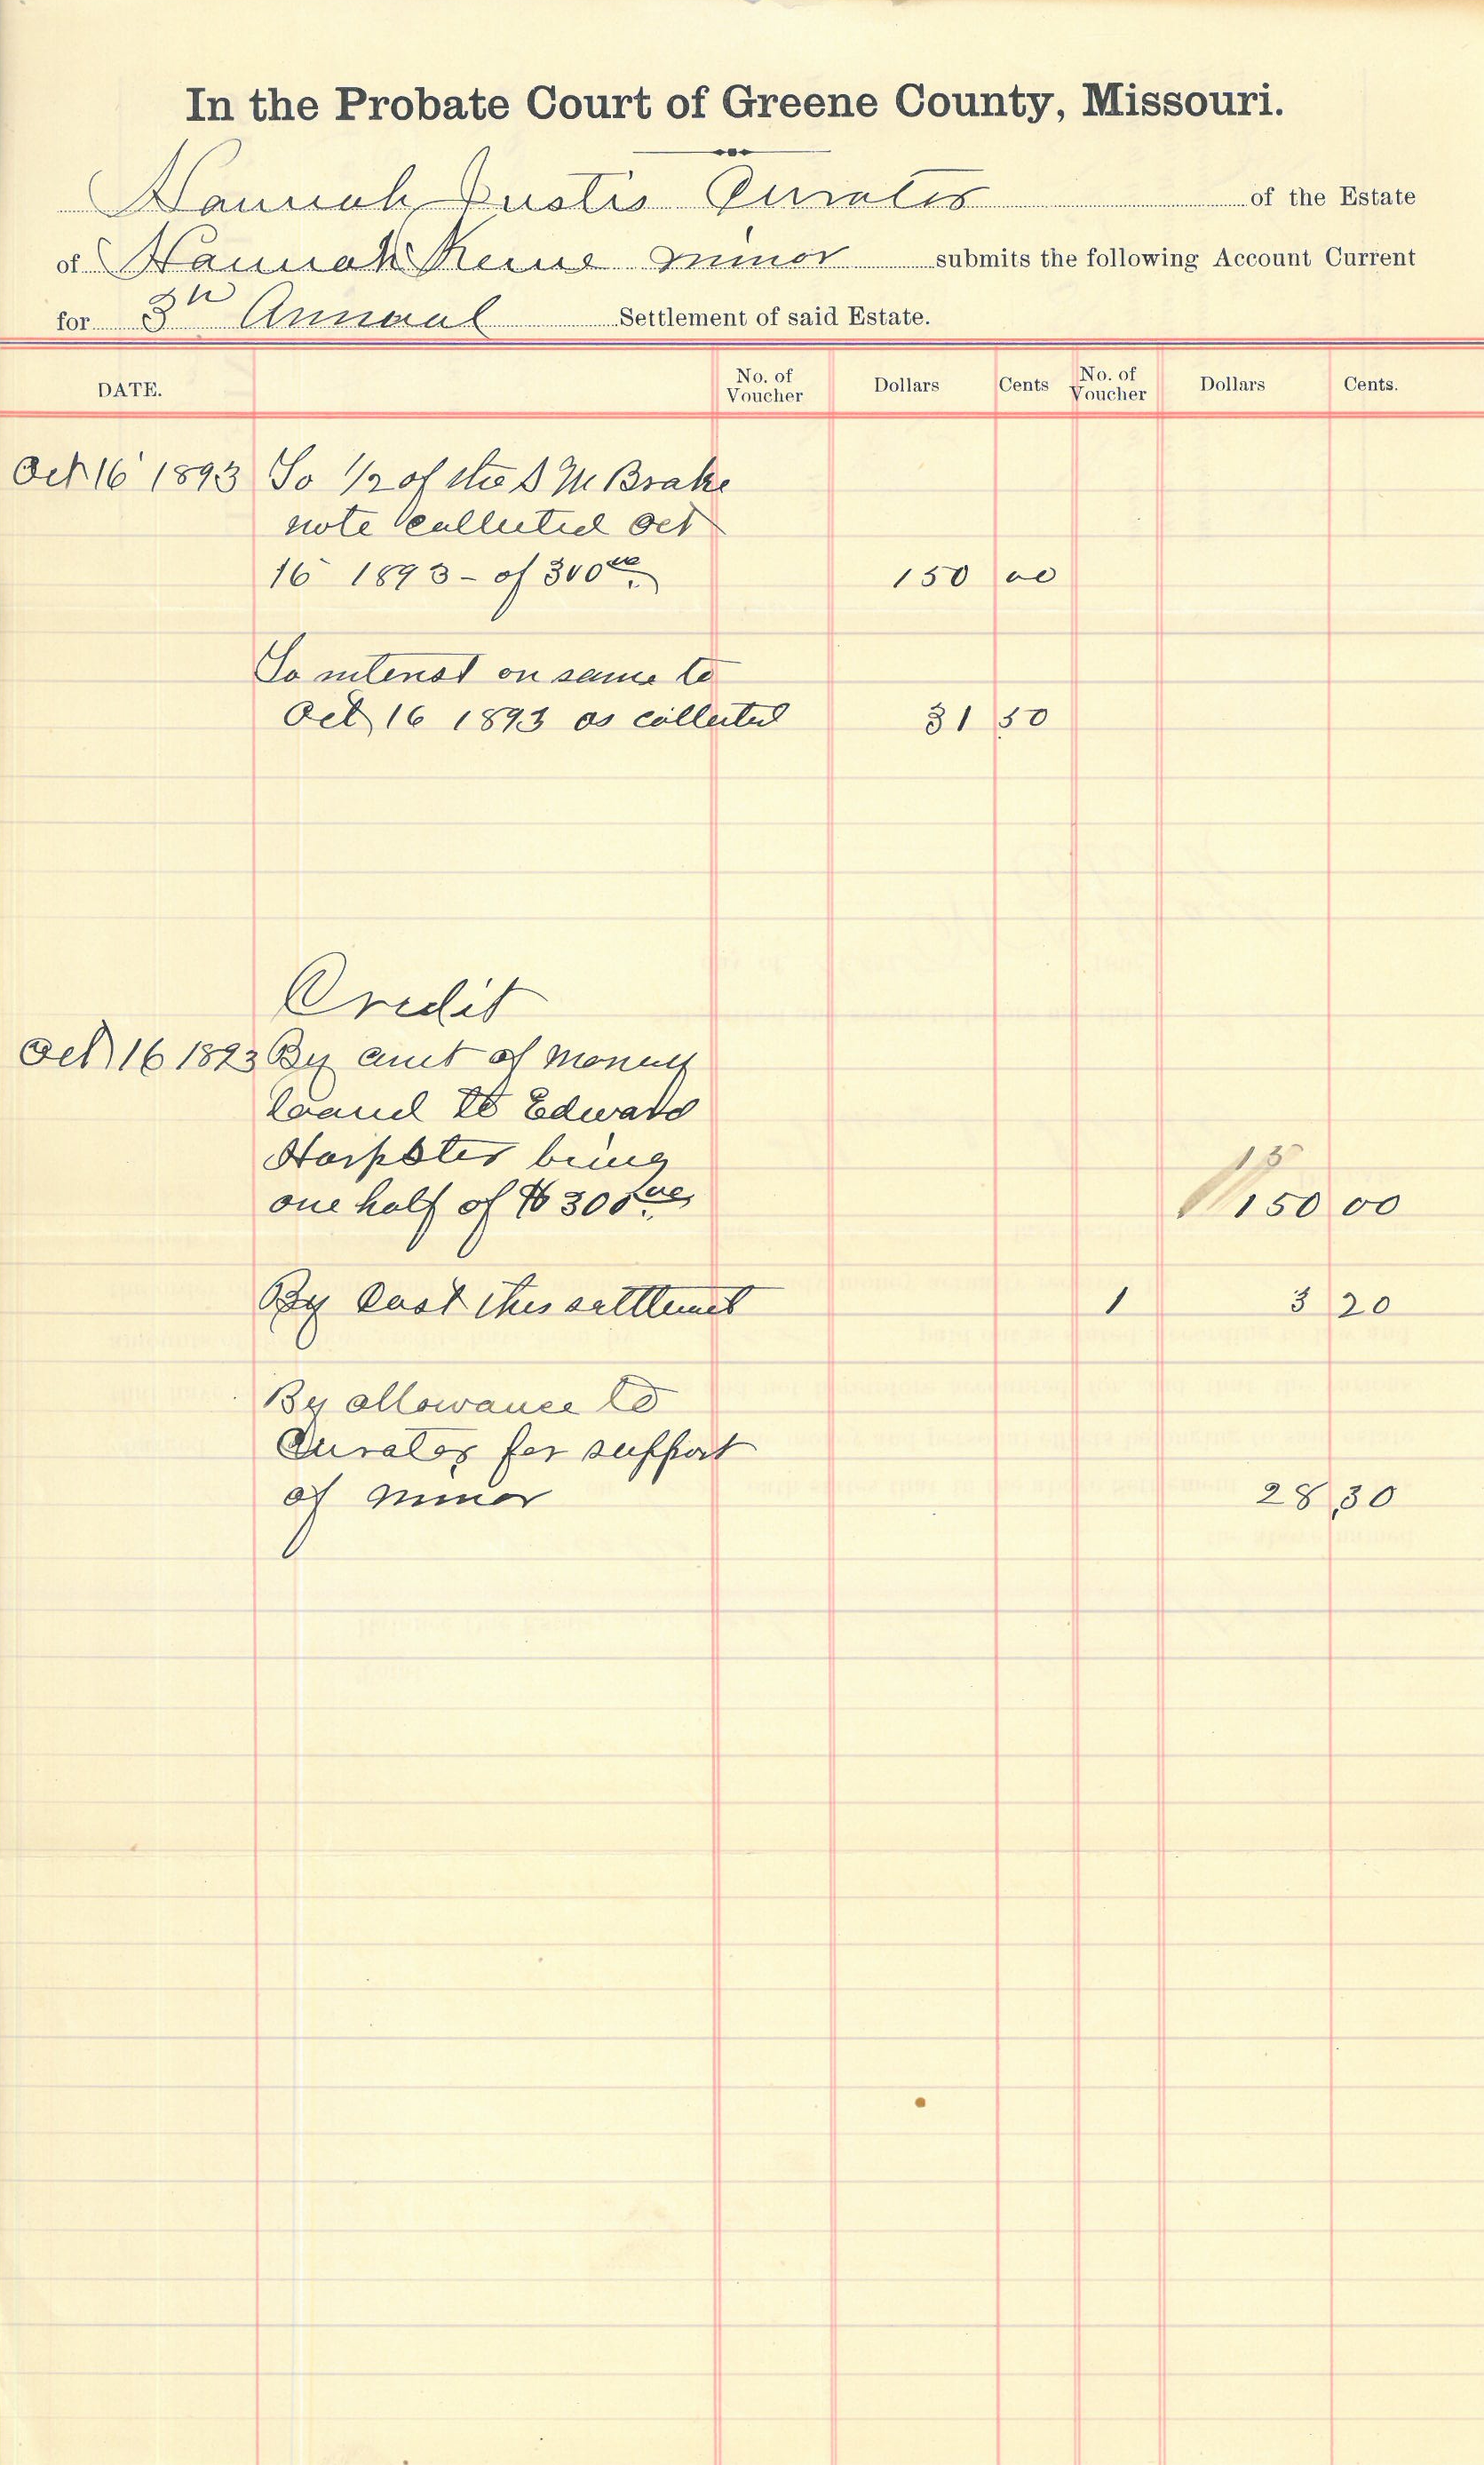 In the Probate Court of Greene County, Missouri.
Hannah Justis Curator of the Estate
of Hannah minor submits the following Account Current
for 3rd Annual Settlement of said Estate.
DATE. No. of Voucher Dollars Cents No. of Voucher Dollars Cents.
Oct 16 1893 To 1/2 of the S M Brake
note collected Oct
16 1893 - of 300 00 150 00
To interest on same to
Oct 16 1893 as collected 31 50
Credit
Oct 16 1893 By amt of money
loaned to Edward
Harpster being
one half of $300 00 150 00
By Cost this settlement 1 3 20
By allowance to
Curator for support
of minor 28 30